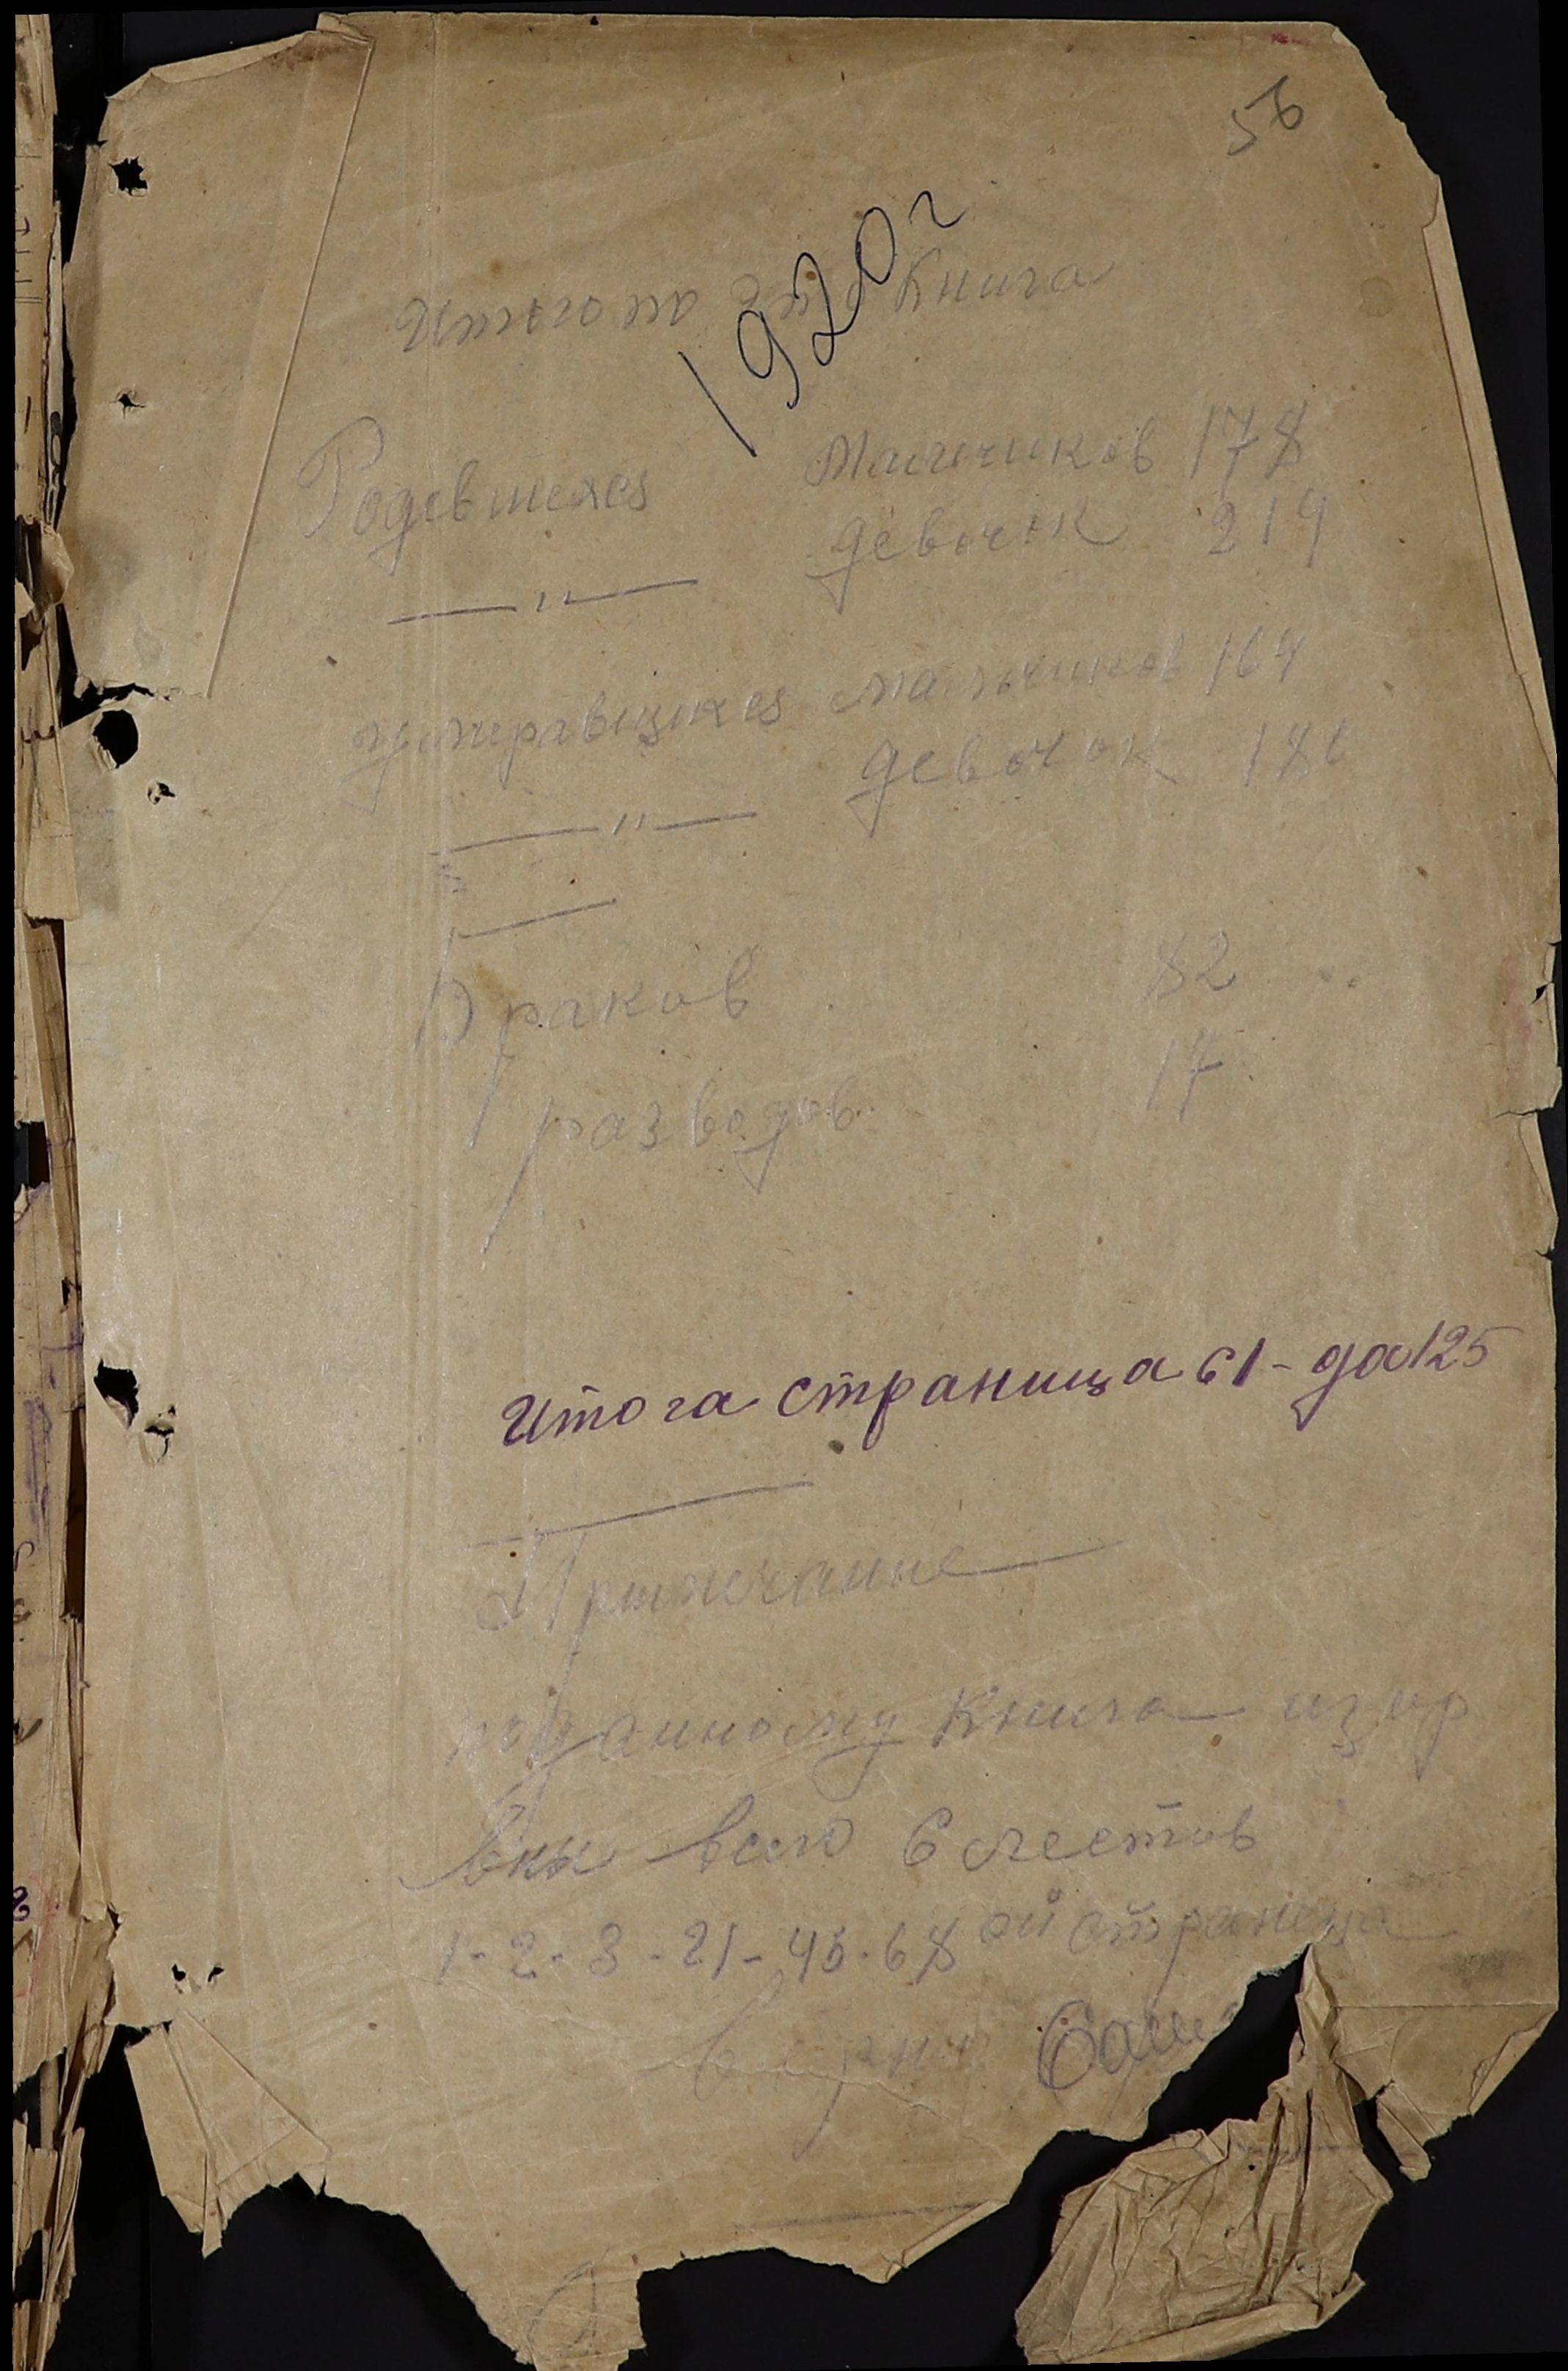 56
1920 г
Итого по Книга
Родевшехся Мальчиков 178
— " — девочек 219
умеравщихся мальчиков 164
— " — девочок
Браков 82
разводов 17
Итога страница 61 - да 125
Примечание
по данному Книга изор
вны всего 6 лестов
1 - 2 - 3 - 21 - 45 - 68 ой страница